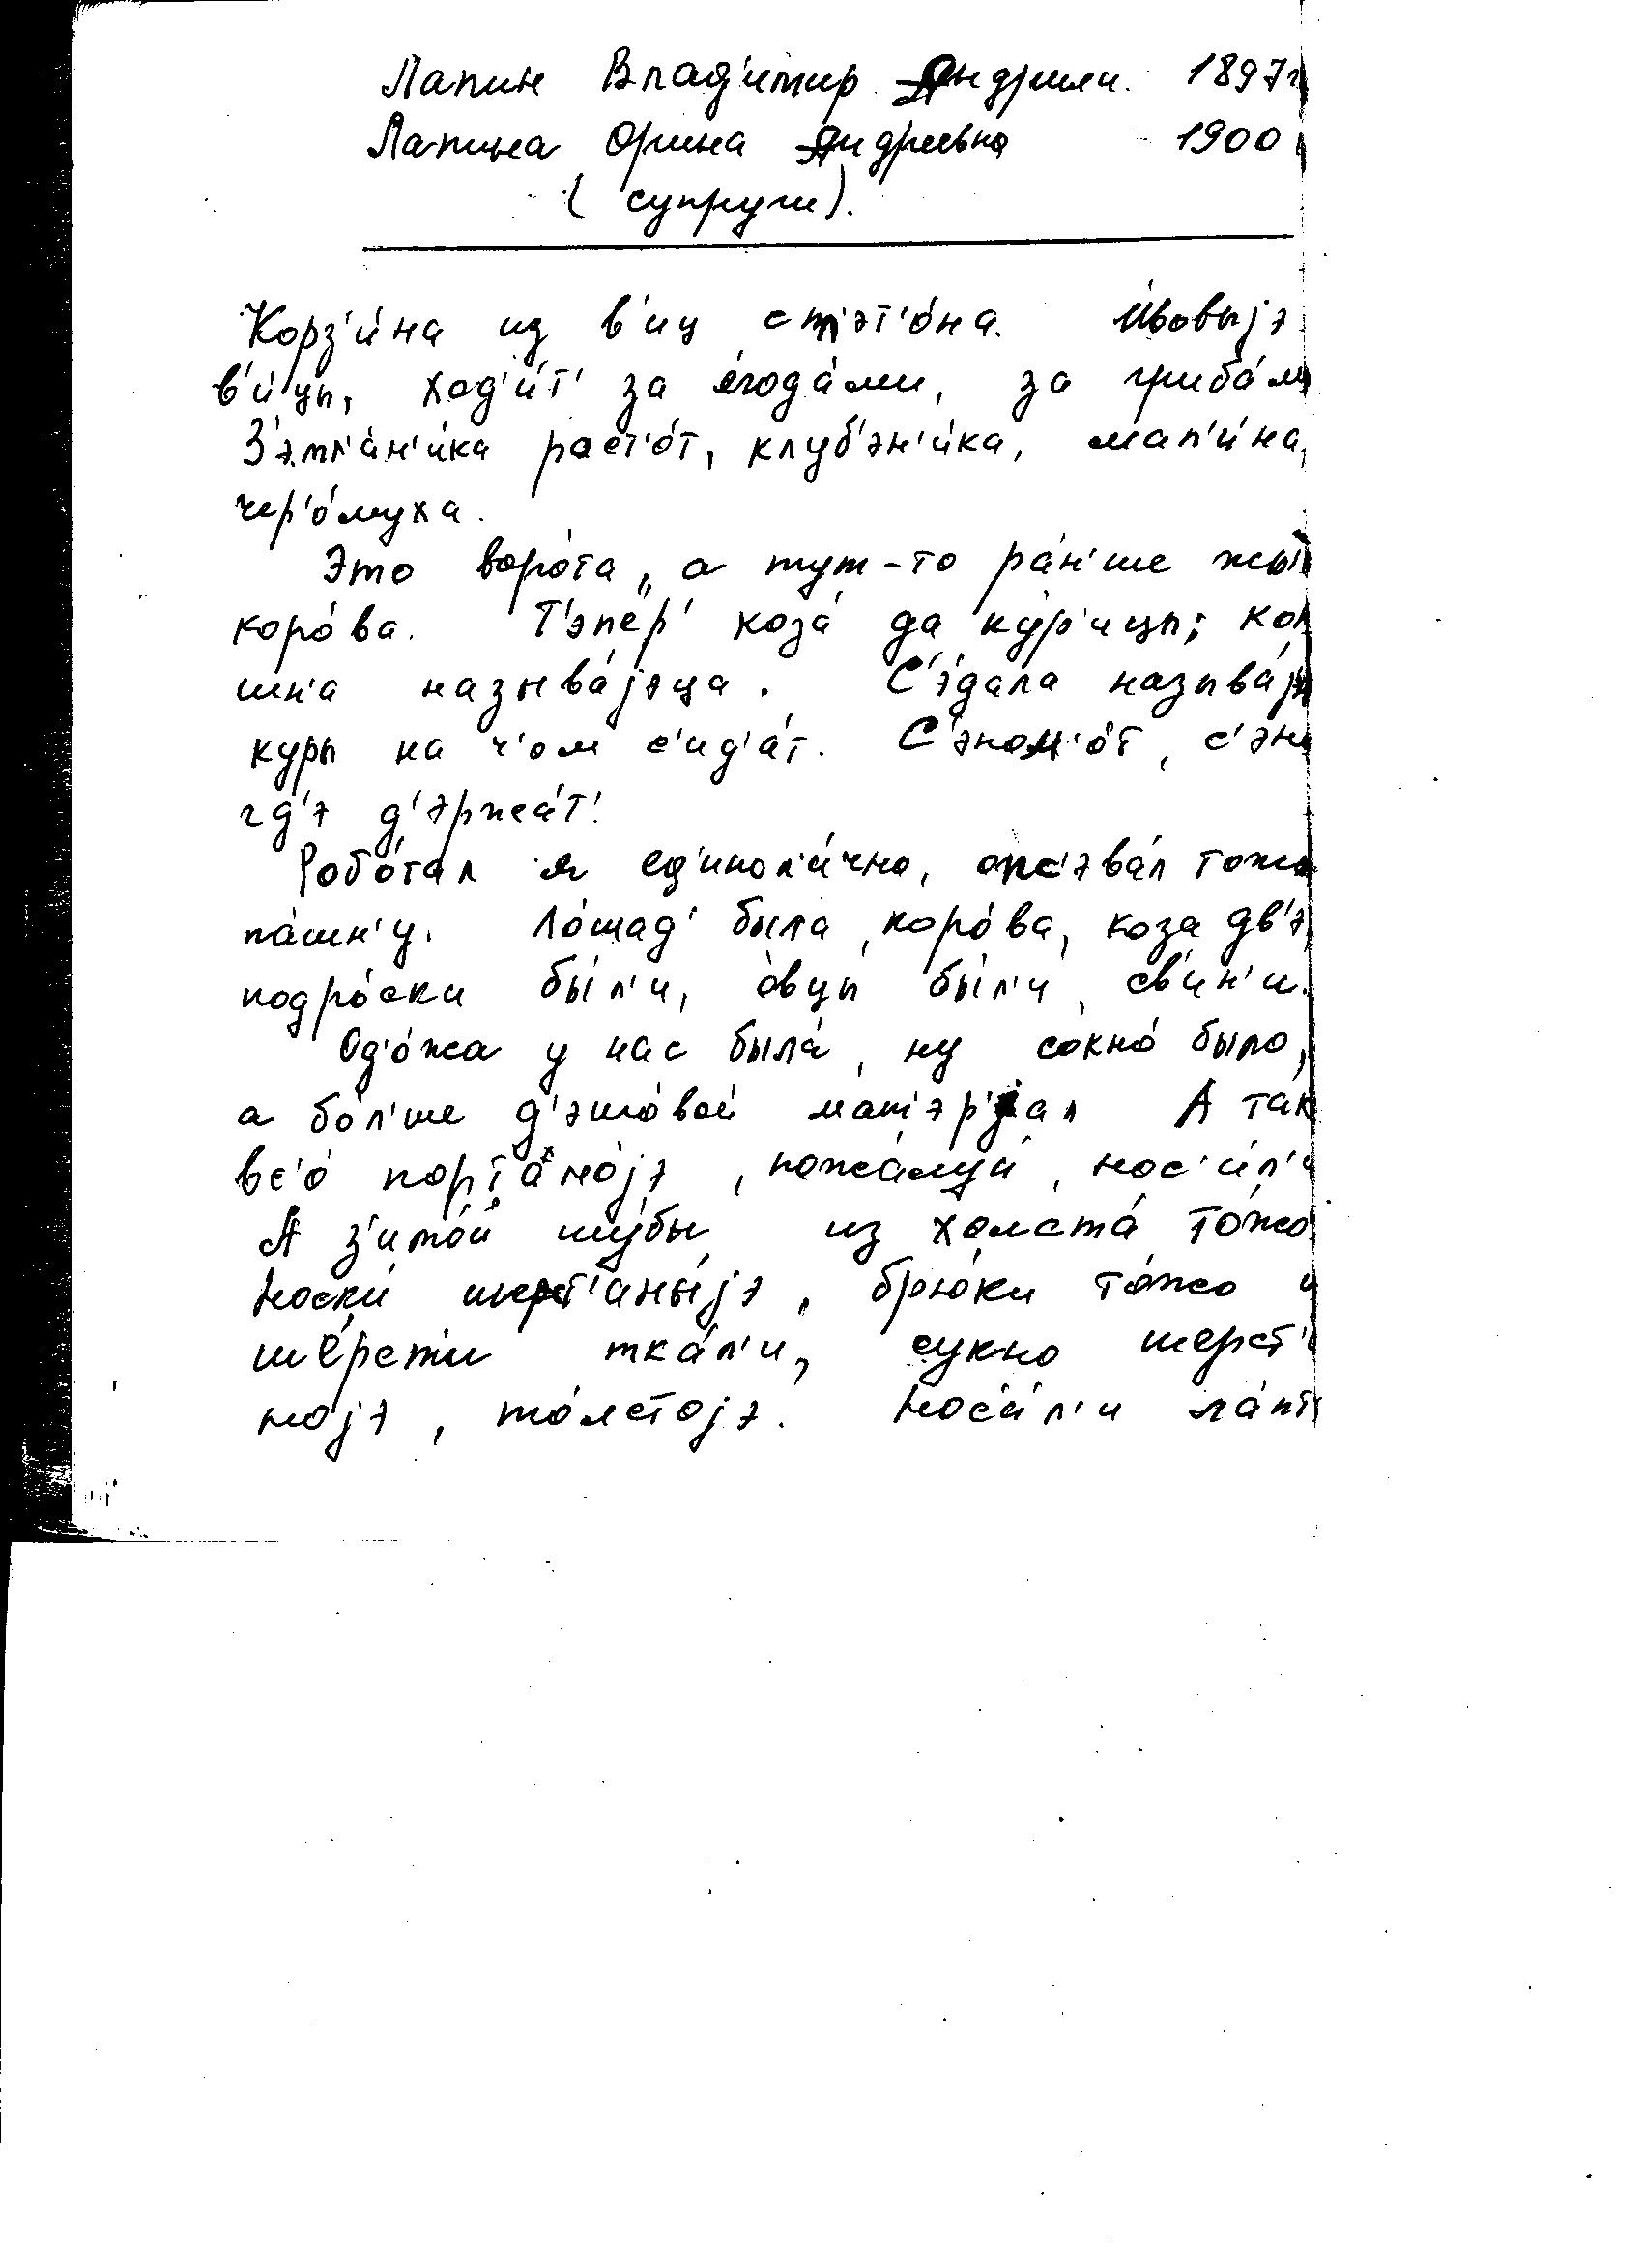 Лапин Влад'имир Андреяи. 1897г
Лапина Орина Андреевна 1900
(супруги).
Корз'и́на из в'иц спл'эт'о́на. И́вовыјэ
в'и́цы, ход'и́т' за я́года́ми, за гриба́м
З'эмл'ан'и́ка раст'о́т, клуб'эн'и́ка, мал'и́на,
чер'о́муха.
Это воро́та, а тут-то ра́н'ше жыл
коро́ва. Т'эпе́р' коза́ да ку́р'ицы; кон
шн'а называ́јэца. С'э́дала называ́ј
куры на ч'ом с'ид'а́т. С'эном'о́т, с'эн
гд'э д'эржа́т'.
Робо́тал я ед'инол'и́чно, опс'эва́л тожо
па́шн'у. Ло́шад' была, коро́ва, коза дв'э,
подро́ски бы́л'и, о́вцы бы́л'и, св'ин'и.
Од'о́жа у нас была́, ну сокно́ было,
а бо́л'ше д'эшо́вой мат'эр'ал А так
вс'о́ порт'а́но́јэ, пожа́луй, нос'и́л'и
А з'имо́й шу́бы из холста́ то́жо
носки́ шерст'аны́јэ, брю́ки то́жо и
ше́рсти тка́л'и, сукно шерст'
нојэ, то́лстојэ. Нос'и́л'и ла́пт